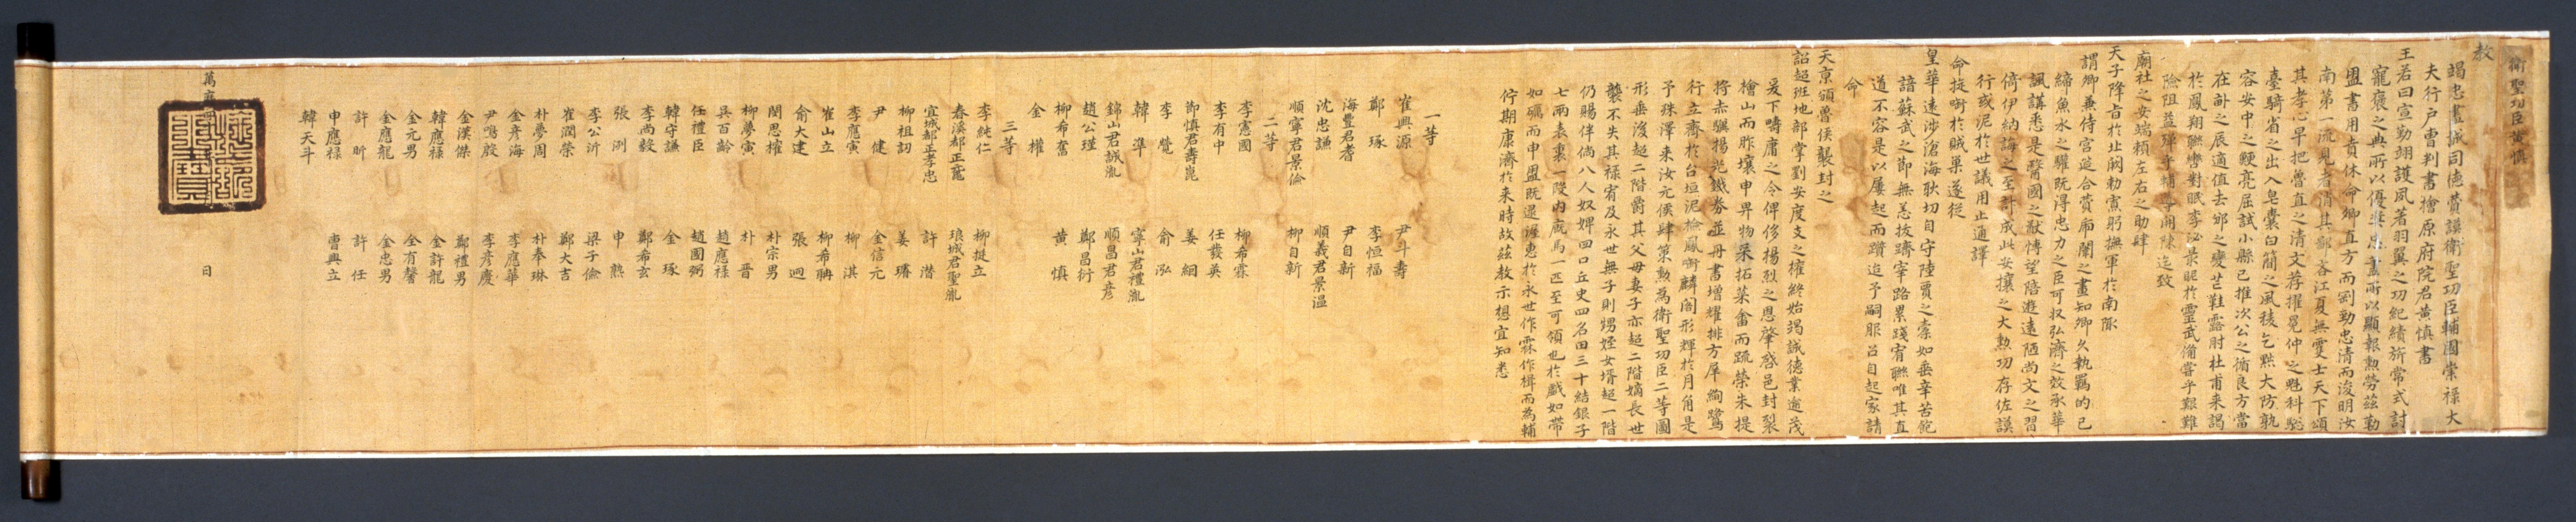 衛聖功臣黃愼
教
竭忠盡誠同德贊謨衛聖功臣輔國崇祿大
夫行戶曹判書檜原府院君黃愼書
王若曰宣勤翊護夙著羽翼之功紀績旂常式討
寵褒之典所以優 所以顯報勲勞玆勒
盟書用賁休命卿直方而剛勁忠淸而浚明汝
南第一流見者消其鄙吝江夏無雙士天下頌
其孝心早把曾直之淸文荐擢晁仲之魁科驄
臺騎省之出入皂囊白簡之風稜乞黙大防孰
容安中之鯁亮屈試小縣已推次公之循良方當
在 之辰適値去邠之變芒鞋露肘杜甫來謁
於鳳翔聯轡對眠李泌景昵於靈武備嘗乎艱難
險阻益殫乎輔導開陳迄致
廟社之安端賴左右之助肆
天子降旨於北闕勅寡躬撫軍於南陬
謂卿兼侍宮筵合贊廟闈之畫知卿久執羈的已
締魚水之驩旣得忠力之臣可收弘濟之效承華
諷講悉是醫國之猷博望陪遊遠陋尙文之習
倚伊納誨之至計成此安攘之大勲功存佐謨
行或泥於世議用止通譯
命挺 於賊巢遂從
皇華遠涉滄海耿切自守陸賈之橐如垂辛苦飽
諳蘇武之節無恙抆躋宰路累踐宥聯唯其直
道不容是以屢起而躓迨予嗣服召自起家請
命
天京頒曾侯襲封之
詔超班地部掌劉安度支之權終始竭誠德業逾茂
爰下疇庸之令俾侈揚烈之恩肇啓邑封裂
檜山而胙壤申畀物采拓菜畬而疏榮朱提
將赤驥揚光鐵券並丹書增耀排方犀絢鷺
行立齋於台垣泥檢鳳 麟閣形輝於月角是
予殊澤來汝元侯肆策勲爲衛聖功臣二等圖
形垂後超二階爵其父母妻子亦超二階嫡長世
襲不失其祿宥及永世無子則甥姪女壻超一階
仍賜伴倘八人奴婢四口丘史四名田三十結銀子
七兩表裏一段內廐馬一匹至可領也於戲如帶
如礪而申盟旣 忠於永世作霖作楫而爲輔
佇期康濟於來時故玆敎示想宜知悉
一等
崔興源 尹斗壽
鄭琢 李恒福
海豊君耆 尹自新
沈忠謙 順義君景溫
順寧君景儉 柳自新
二等
李憲國 柳希霖
李有中 任發英
節愼君壽崑 姜絪
李覺 兪泓
韓準 寧山君禮胤
錦山君誠胤 順昌君彥
趙公瑾 鄭昌衍
柳希奮 黃愼
金權
三等
李純仁 柳挺立
春溪都正竉 琅城君聖胤
宜城都正孝忠 許潜
柳祖訒 姜璿
尹健 金信元
李應寅 柳淇
崔山立 柳希聃
兪大建 張迥
閔思權 朴宗男
柳夢寅 朴晋
具百齡 趙應祿
任禮臣 趙國弼
韓守謙 金琢
李尙毅 鄭希玄
張洌 申熱
李公沂 梁子儉
崔潤榮 鄭大吉
朴夢周 朴奉琳
金彥海 李應華
尹鳴殷 李彥慶
金漢傑 鄭禮男
韓應祿 金許龍
金元男 全有馨
金應龍 金忠男
許昕 許任
申應祿 曹興立
韓天斗
萬曆 日